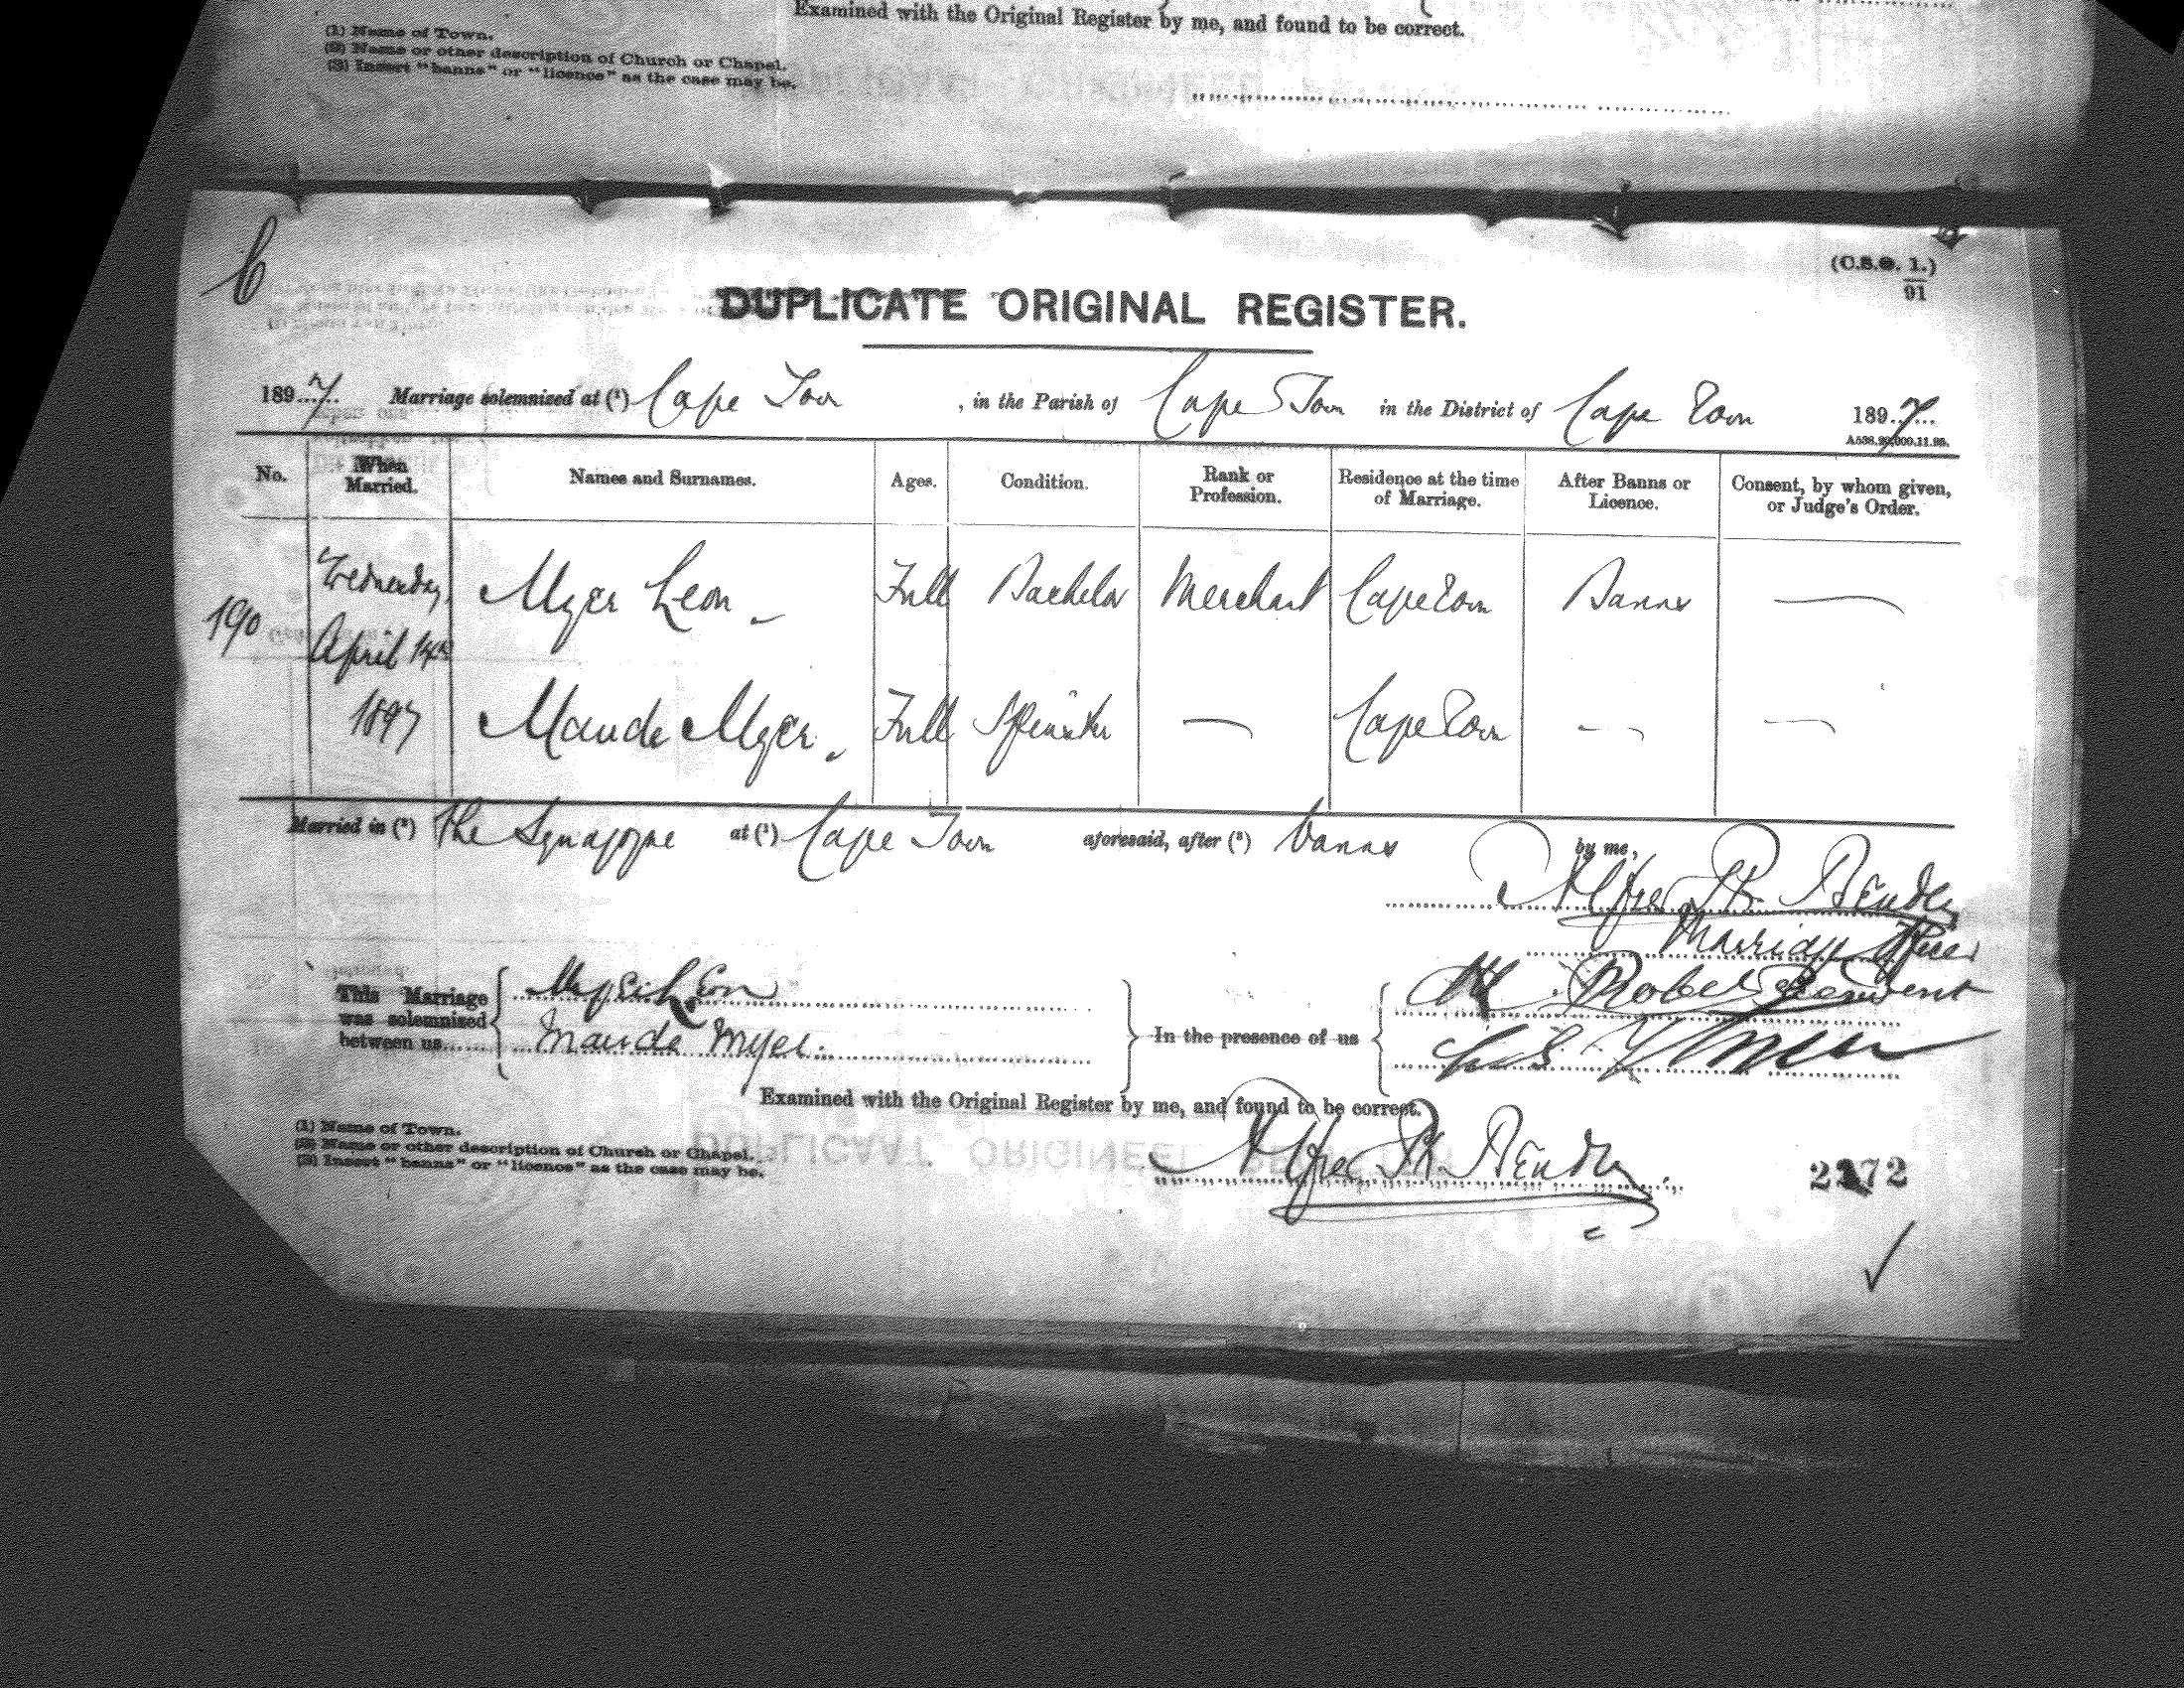 Examined with the Original Register by me, and found to be correct.
(1) Name of Town.
(2) Name or other description of Church or Chapel.
(3) Insert "banns" or "licence" as the case may be.
(C.S.O. 1.)
91
DUPLICATE ORIGINAL REGISTER.
1897 Marriage solemnized at (1) Cape Town, in the Parish of Cape Town in the District of Cape Town 1897
No. When Married. Names and Surnames. Ages. Condition. Rank or Profession. Residence at the time of Marriage. After Banns or Licence. Consent, by whom given, or Judge's Order.
190 Wednesday, April 14th 1897
Myer Leon Full Bachelor Merchant Cape Town Banns —
Maude Myer Full Spinster — Cape Town — —
Married in (2) the Synagogue at (1) Cape Town aforesaid, after (3) banns by me,
Alfred P. Bender
Marriage Officer
This Marriage was solemnized between us
Myer Leon
Maude Myer
In the presence of us
President
Examined with the Original Register by me, and found to be correct.
Alfred P. Bender
(1) Name of Town.
(2) Name or other description of Church or Chapel.
(3) Insert "banns" or "licence" as the case may be.